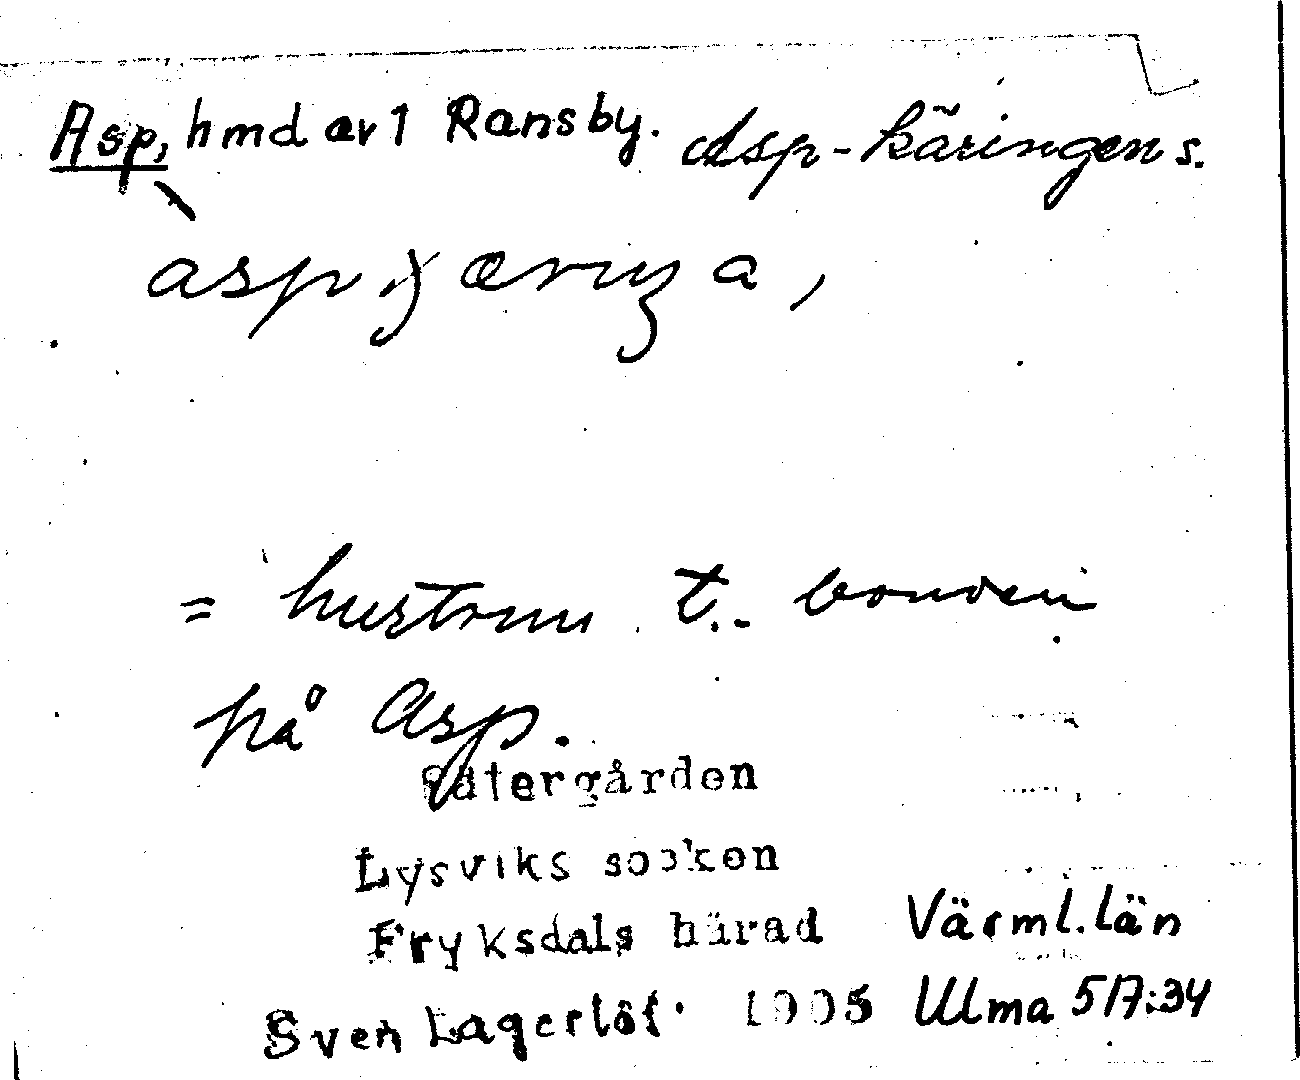 Asp, hmd av 1 Ransby. Asp-käringen s.
= hustrun t. bonden
på Asp.
Sätergården
Lysviks socken
Fryksdals härad Värml. län
Sven Lagerlöf. 1905 Ulma 517:34